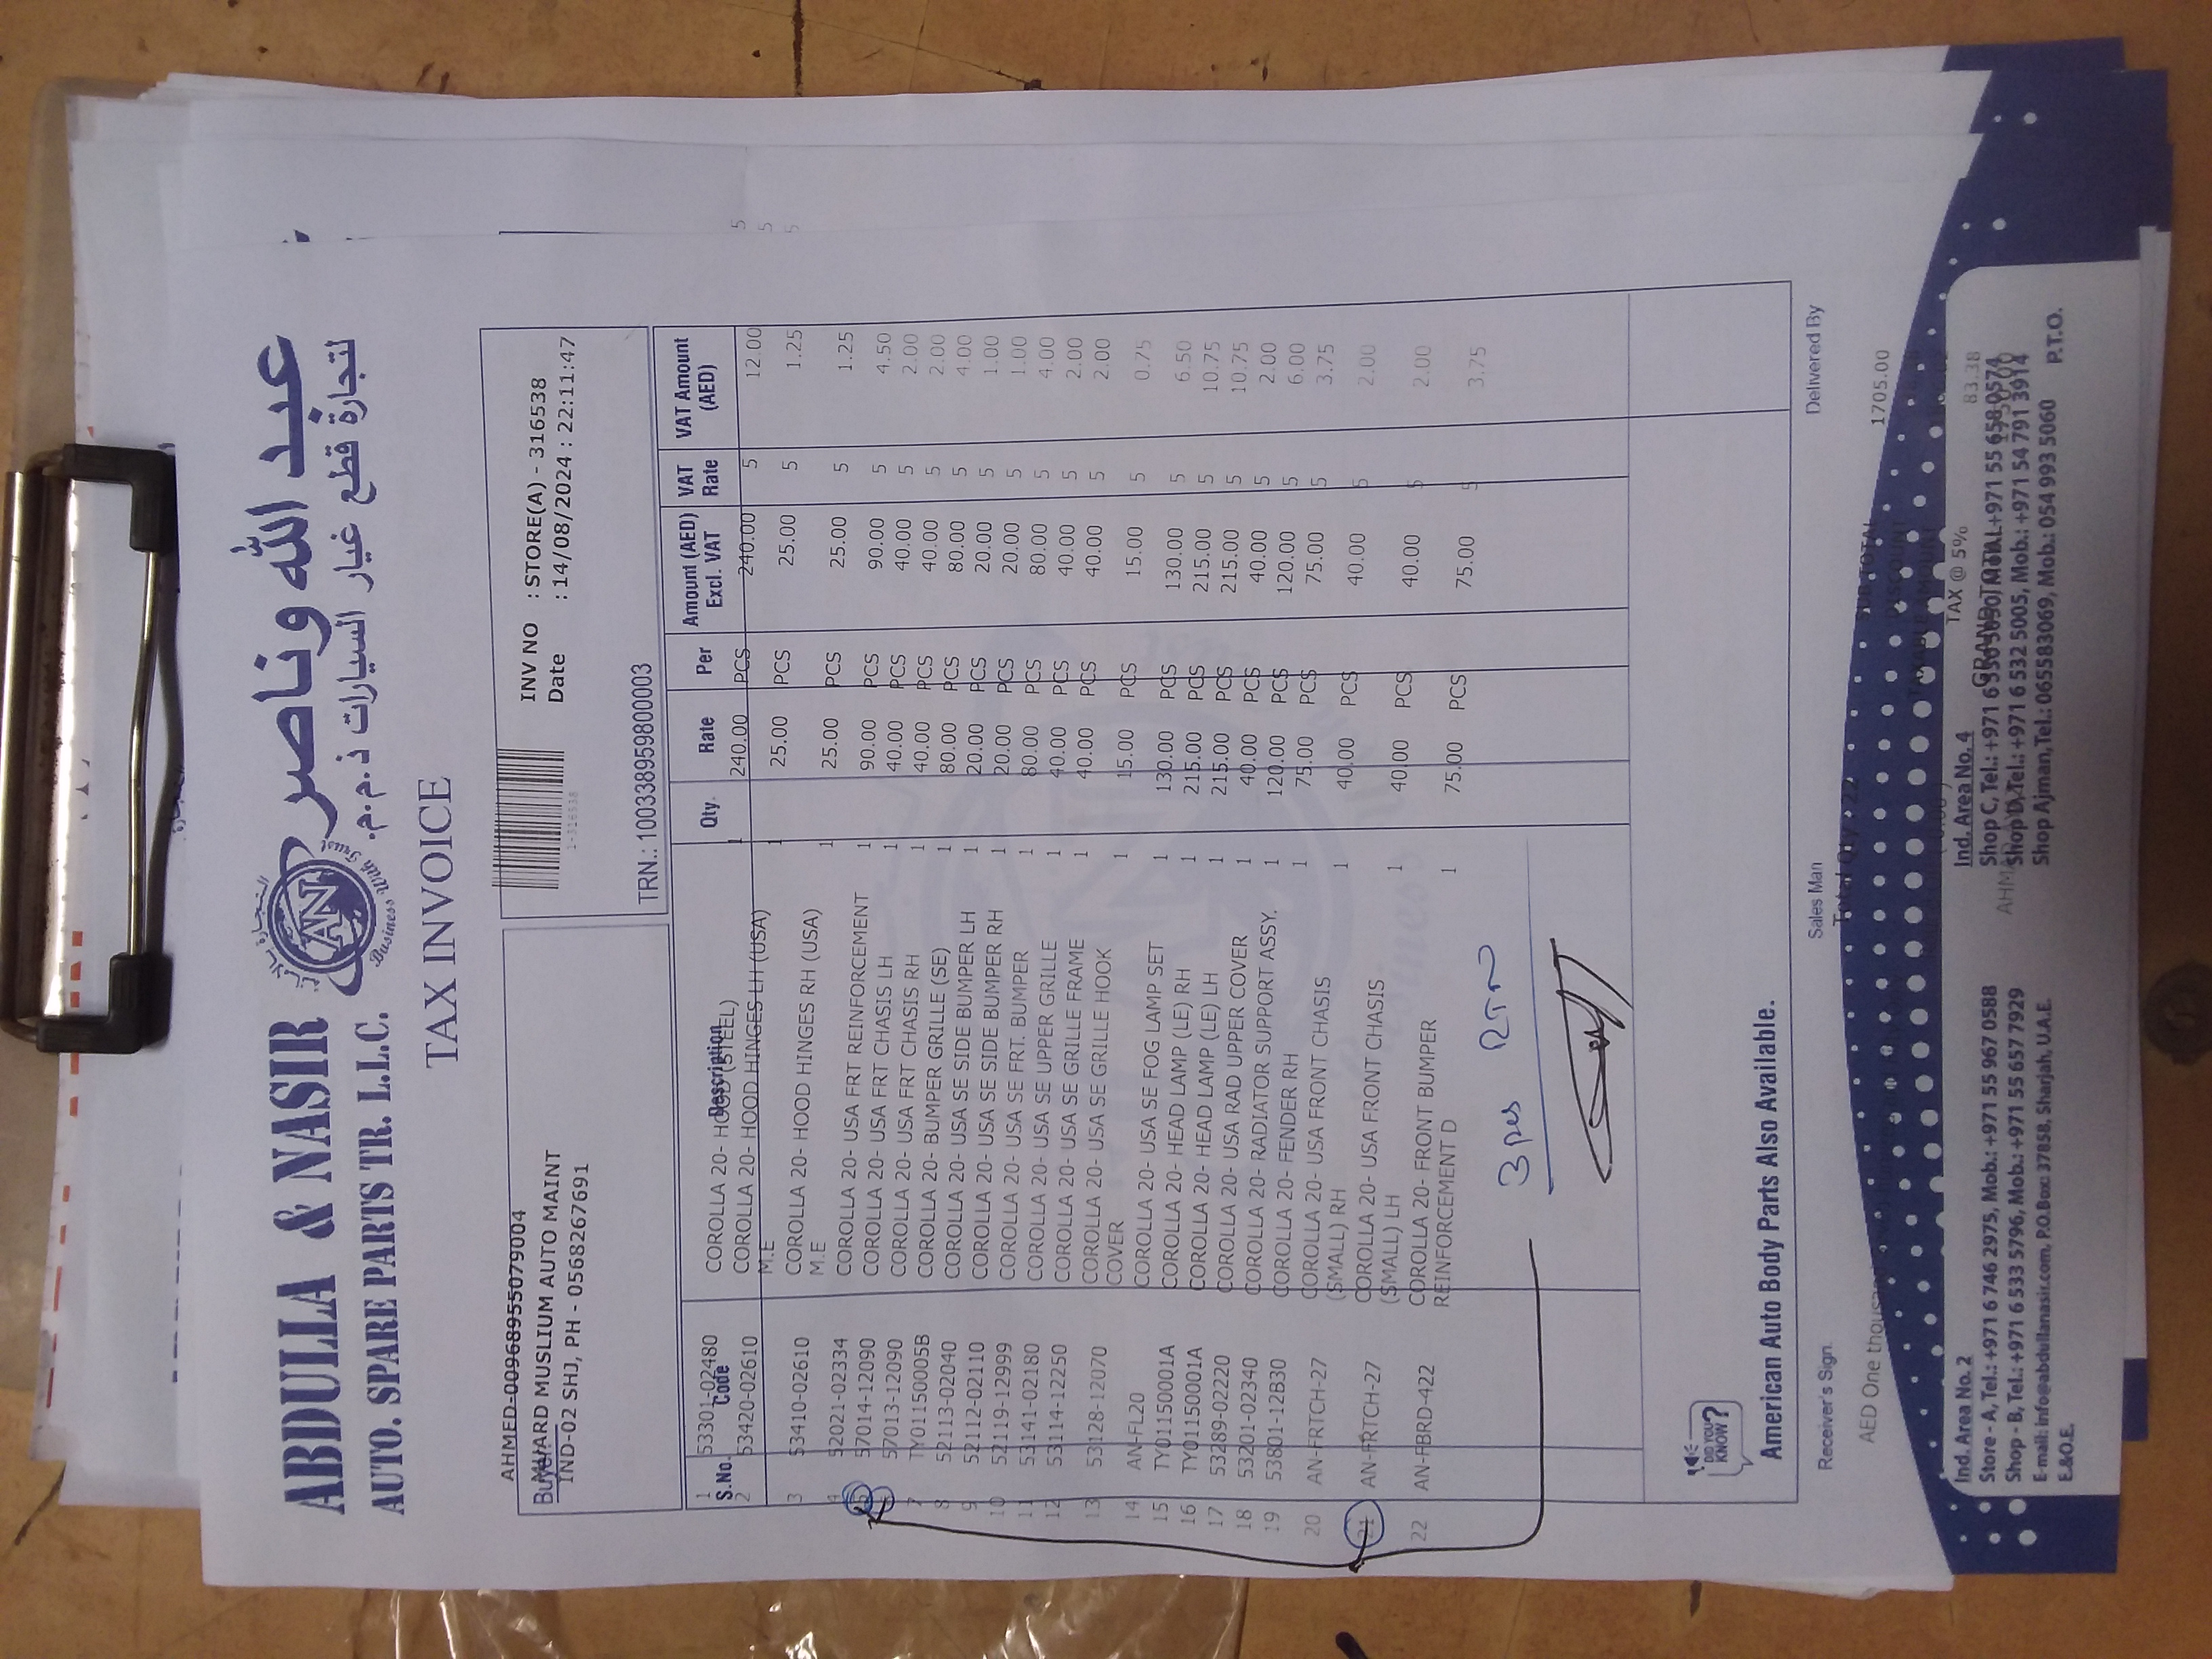 عبد الله وناصر
لتجارة قطع غيار السيارات ذ.م.م.
ABDULLA & NASIR
AUTO. SPARE PARTS TR. L.L.C.
AN
Business With Trust
TAX INVOICE
AHMED-00968955079004
Buyer
MUWARD MUSLIUM AUTO MAINT
IND-02 SHJ, PH - 0568267691
1-316538
INV NO : STORE(A) - 316538
Date : 14/08/2024 : 22:11:47
TRN.: 100338959800003
S.No. Code Description Qty. Rate Per Amount (AED) Excl. VAT VAT Rate VAT Amount (AED)
1 53301-02480 COROLLA 20- HOOD (STEEL) 1 240.00 PCS 240.00 5 12.00
2 53420-02610 COROLLA 20- HOOD HINGES LH (USA) 1 25.00 PCS 25.00 5 1.25
M.E
3 53410-02610 COROLLA 20- HOOD HINGES RH (USA) 1 25.00 PCS 25.00 5 1.25
M.E
4 52021-02334 COROLLA 20- USA FRT REINFORCEMENT 1 90.00 PCS 90.00 5 4.50
5 57014-12090 COROLLA 20- USA FRT CHASIS LH 1 40.00 PCS 40.00 5 2.00
6 57013-12090 COROLLA 20- USA FRT CHASIS RH 1 40.00 PCS 40.00 5 2.00
7 TY01150005B COROLLA 20- BUMPER GRILLE (SE) 1 80.00 PCS 80.00 5 4.00
8 52113-02040 COROLLA 20- USA SE SIDE BUMPER LH 1 20.00 PCS 20.00 5 1.00
9 52112-02110 COROLLA 20- USA SE SIDE BUMPER RH 1 20.00 PCS 20.00 5 1.00
10 52119-12999 COROLLA 20- USA SE FRT. BUMPER 1 80.00 PCS 80.00 5 4.00
11 53141-02180 COROLLA 20- USA SE UPPER GRILLE 1 40.00 PCS 40.00 5 2.00
12 53114-12250 COROLLA 20- USA SE GRILLE FRAME 1 40.00 PCS 40.00 5 2.00
13 53128-12070 COROLLA 20- USA SE GRILLE HOOK 1 15.00 PCS 15.00 5 0.75
COVER
14 AN-FL20 COROLLA 20- USA SE FOG LAMP SET 1 130.00 PCS 130.00 5 6.50
15 TY01150001A COROLLA 20- HEAD LAMP (LE) RH 1 215.00 PCS 215.00 5 10.75
16 TY01150001A COROLLA 20- HEAD LAMP (LE) LH 1 215.00 PCS 215.00 5 10.75
17 53289-02220 COROLLA 20- USA RAD UPPER COVER 1 40.00 PCS 40.00 5 2.00
18 53201-02340 COROLLA 20- RADIATOR SUPPORT ASSY. 1 120.00 PCS 120.00 5 6.00
19 53801-12B30 COROLLA 20- FENDER RH 1 75.00 PCS 75.00 5 3.75
20 AN-FRTCH-27 COROLLA 20- USA FRONT CHASIS 1 40.00 PCS 40.00 5 2.00
(SMALL) RH
21 AN-FRTCH-27 COROLLA 20- USA FRONT CHASIS 1 40.00 PCS 40.00 5 2.00
(SMALL) LH
22 AN-FBRD-422 COROLLA 20- FRONT BUMPER 1 75.00 PCS 75.00 5 3.75
REINFORCEMENT D
3 pcs RTN
DID YOU KNOW?
American Auto Body Parts Also Available.
Receiver's Sign. Sales Man Delivered By
Total Qty : 22 SUB TOTAL 1705.00
AED One thousand
TAX @ 5% 83.38
GRAND TOTAL
Ind. Area No. 2
Store - A, Tel.: +971 6 746 2975, Mob.: +971 55 967 0588
Shop - B, Tel.: +971 6 533 5796, Mob.: +971 55 657 7929
E-mail: info@abdullanasir.com, P.O.Box: 37858, Sharjah, U.A.E.
E.&O.E.
Ind. Area No. 4
Shop C, Tel.: +971 6 Mob.: +971 55 658 0574
Shop D, Tel.: +971 6 532 5005, Mob.: +971 54 791 3914
Shop Ajman, Tel.: 065583069, Mob.: 054 993 5060
P.T.O.